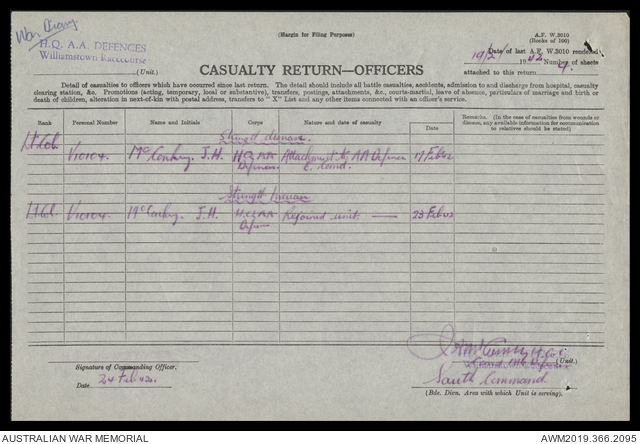 War Diary
(Margin for Filing Purposes)
A.F. W.3010
(Books of 100)
H.Q. A.A. DEFENCES
Williamstown Racecourse
(Unit.)
Date of last A.F. W.3010 rendered
19/2/1942 Number of sheets
attached to this return
CASUALTY RETURN—OFFICERS
Detail of casualties to officers which have occurred since last return. The detail should include all battle casualties, accidents, admission to and discharge from hospital, casualty
clearing station, &c. Promotions (acting, temporary, local or substantive), transfers, postings, attachments, &c., courts-martial, leave of absence, particulars of marriage and birth or
death of children, alteration in next-of-kin with postal address, transfers to "X" List and any other items connected with an officer's service.
Rank Personal Number Name and Initials Corps Nature and date of casualty Date Remarks. (In the case of casualties from wounds or
disease, any available information for communication
to relatives should be stated)
Strength decrease.
Lt.Col. V10104. McConkey. J.H. H.Q AA Attachment to AA Defences 17 Feb 42
Defences
Strength Increase
Lt.Col. V10104. McConkey. J.H. H.Q AA Rejoined unit. 23 Feb 42
Signature of Commanding Officer.
Date 24 Feb 42.
(Unit.)
South Command.
(Bde. Divn. Area with which Unit is serving).
AUSTRALIAN WAR MEMORIAL
AWM2019.366.2095